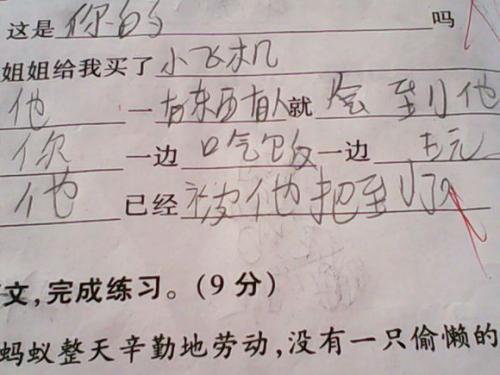 这是你的吗
姐姐给我买了小飞机
他一有东西有人就会到他
你一边吃饭一边玩
他已经被他把到了
文,完成练习。(9分)
蚂蚁整天辛勤地劳动,没有一只偷懒的